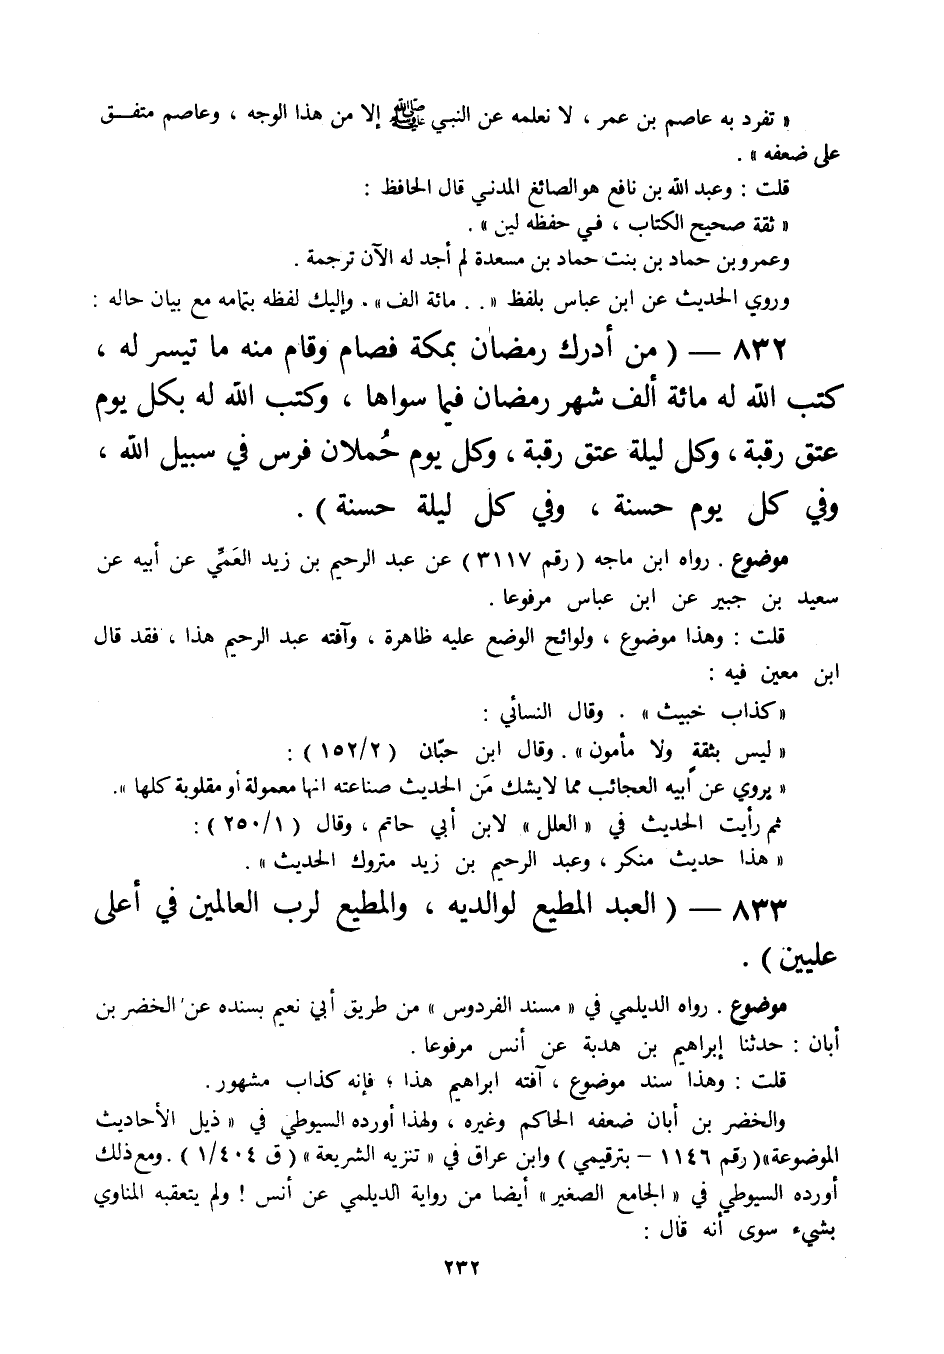 « تفرد به عاصم بن عمر ، لا نعلمه عن النبي ﷺ إلا من هذا الوجه ، وعاصم متفق
على ضعفه » .
قلت : وعبد الله بن نافع هو الصائغ المدني قال الحافظ :
« ثقة صحيح الكتاب ، في حفظه لين » .
وعمرو بن حماد بن بنت حماد بن مسعدة لم أجد له الآن ترجمة .
وروي الحديث عن ابن عباس بلفظ « . . مائة الف » . وإليك لفظه بتمامه مع بيان حاله :
٨٣٢ — ( من أدرك رمضان بمكة فصام وقام منه ما تيسر له ،
كتب الله له مائة ألف شهر رمضان فيما سواها ، وكتب الله له بكل يوم
عتق رقبة ، وكل ليلة عتق رقبة ، وكل يوم حُملان فرس في سبيل الله ،
وفي كل يوم حسنة ، وفي كل ليلة حسنة ) .
موضوع . رواه ابن ماجه ( رقم ٣١١٧ ) عن عبد الرحيم بن زيد العَمِّي عن أبيه عن
سعيد بن جبير عن ابن عباس مرفوعا .
قلت : وهذا موضوع ، ولوائح الوضع عليه ظاهرة ، وآفته عبد الرحيم هذا ، فقد قال
ابن معين فيه :
« كذاب خبيث » . وقال النسائي :
« ليس بثقةٍ ولا مأمون » . وقال ابن حبّان ( ١٥٢/٢ ) :
« يروي عن أبيه العجائب مما لا يشك مَن الحديث صناعته انها معمولة أو مقلوبة كلها » .
ثم رأيت الحديث في « العلل » لابن أبي حاتم ، وقال ( ٢٥٠/١ ) :
« هذا حديث منكر ، وعبد الرحيم بن زيد متروك الحديث » .
٨٣٣ — ( العبد المطيع لوالديه ، والمطيع لرب العالمين في أعلى
عليين ) .
موضوع . رواه الديلمي في « مسند الفردوس » من طريق أبي نعيم بسنده عن الخضر بن
أبان : حدثنا إبراهيم بن هدبة عن أنس مرفوعا .
قلت : وهذا سند موضوع ، آفته ابراهيم هذا ؛ فإنه كذاب مشهور .
والخضر بن أبان ضعفه الحاكم وغيره ، ولهذا أورده السيوطي في « ذيل الأحاديث
الموضوعة » ( رقم ١١٤٦ – بترقيمي ) وابن عراق في « تنزيه الشريعة » ( ق ١/٤٠٤ ) . ومع ذلك
أورده السيوطي في « الجامع الصغير » أيضا من رواية الديلمي عن أنس ! ولم يتعقبه المناوي
بشيء سوى أنه قال :
٢٣٢